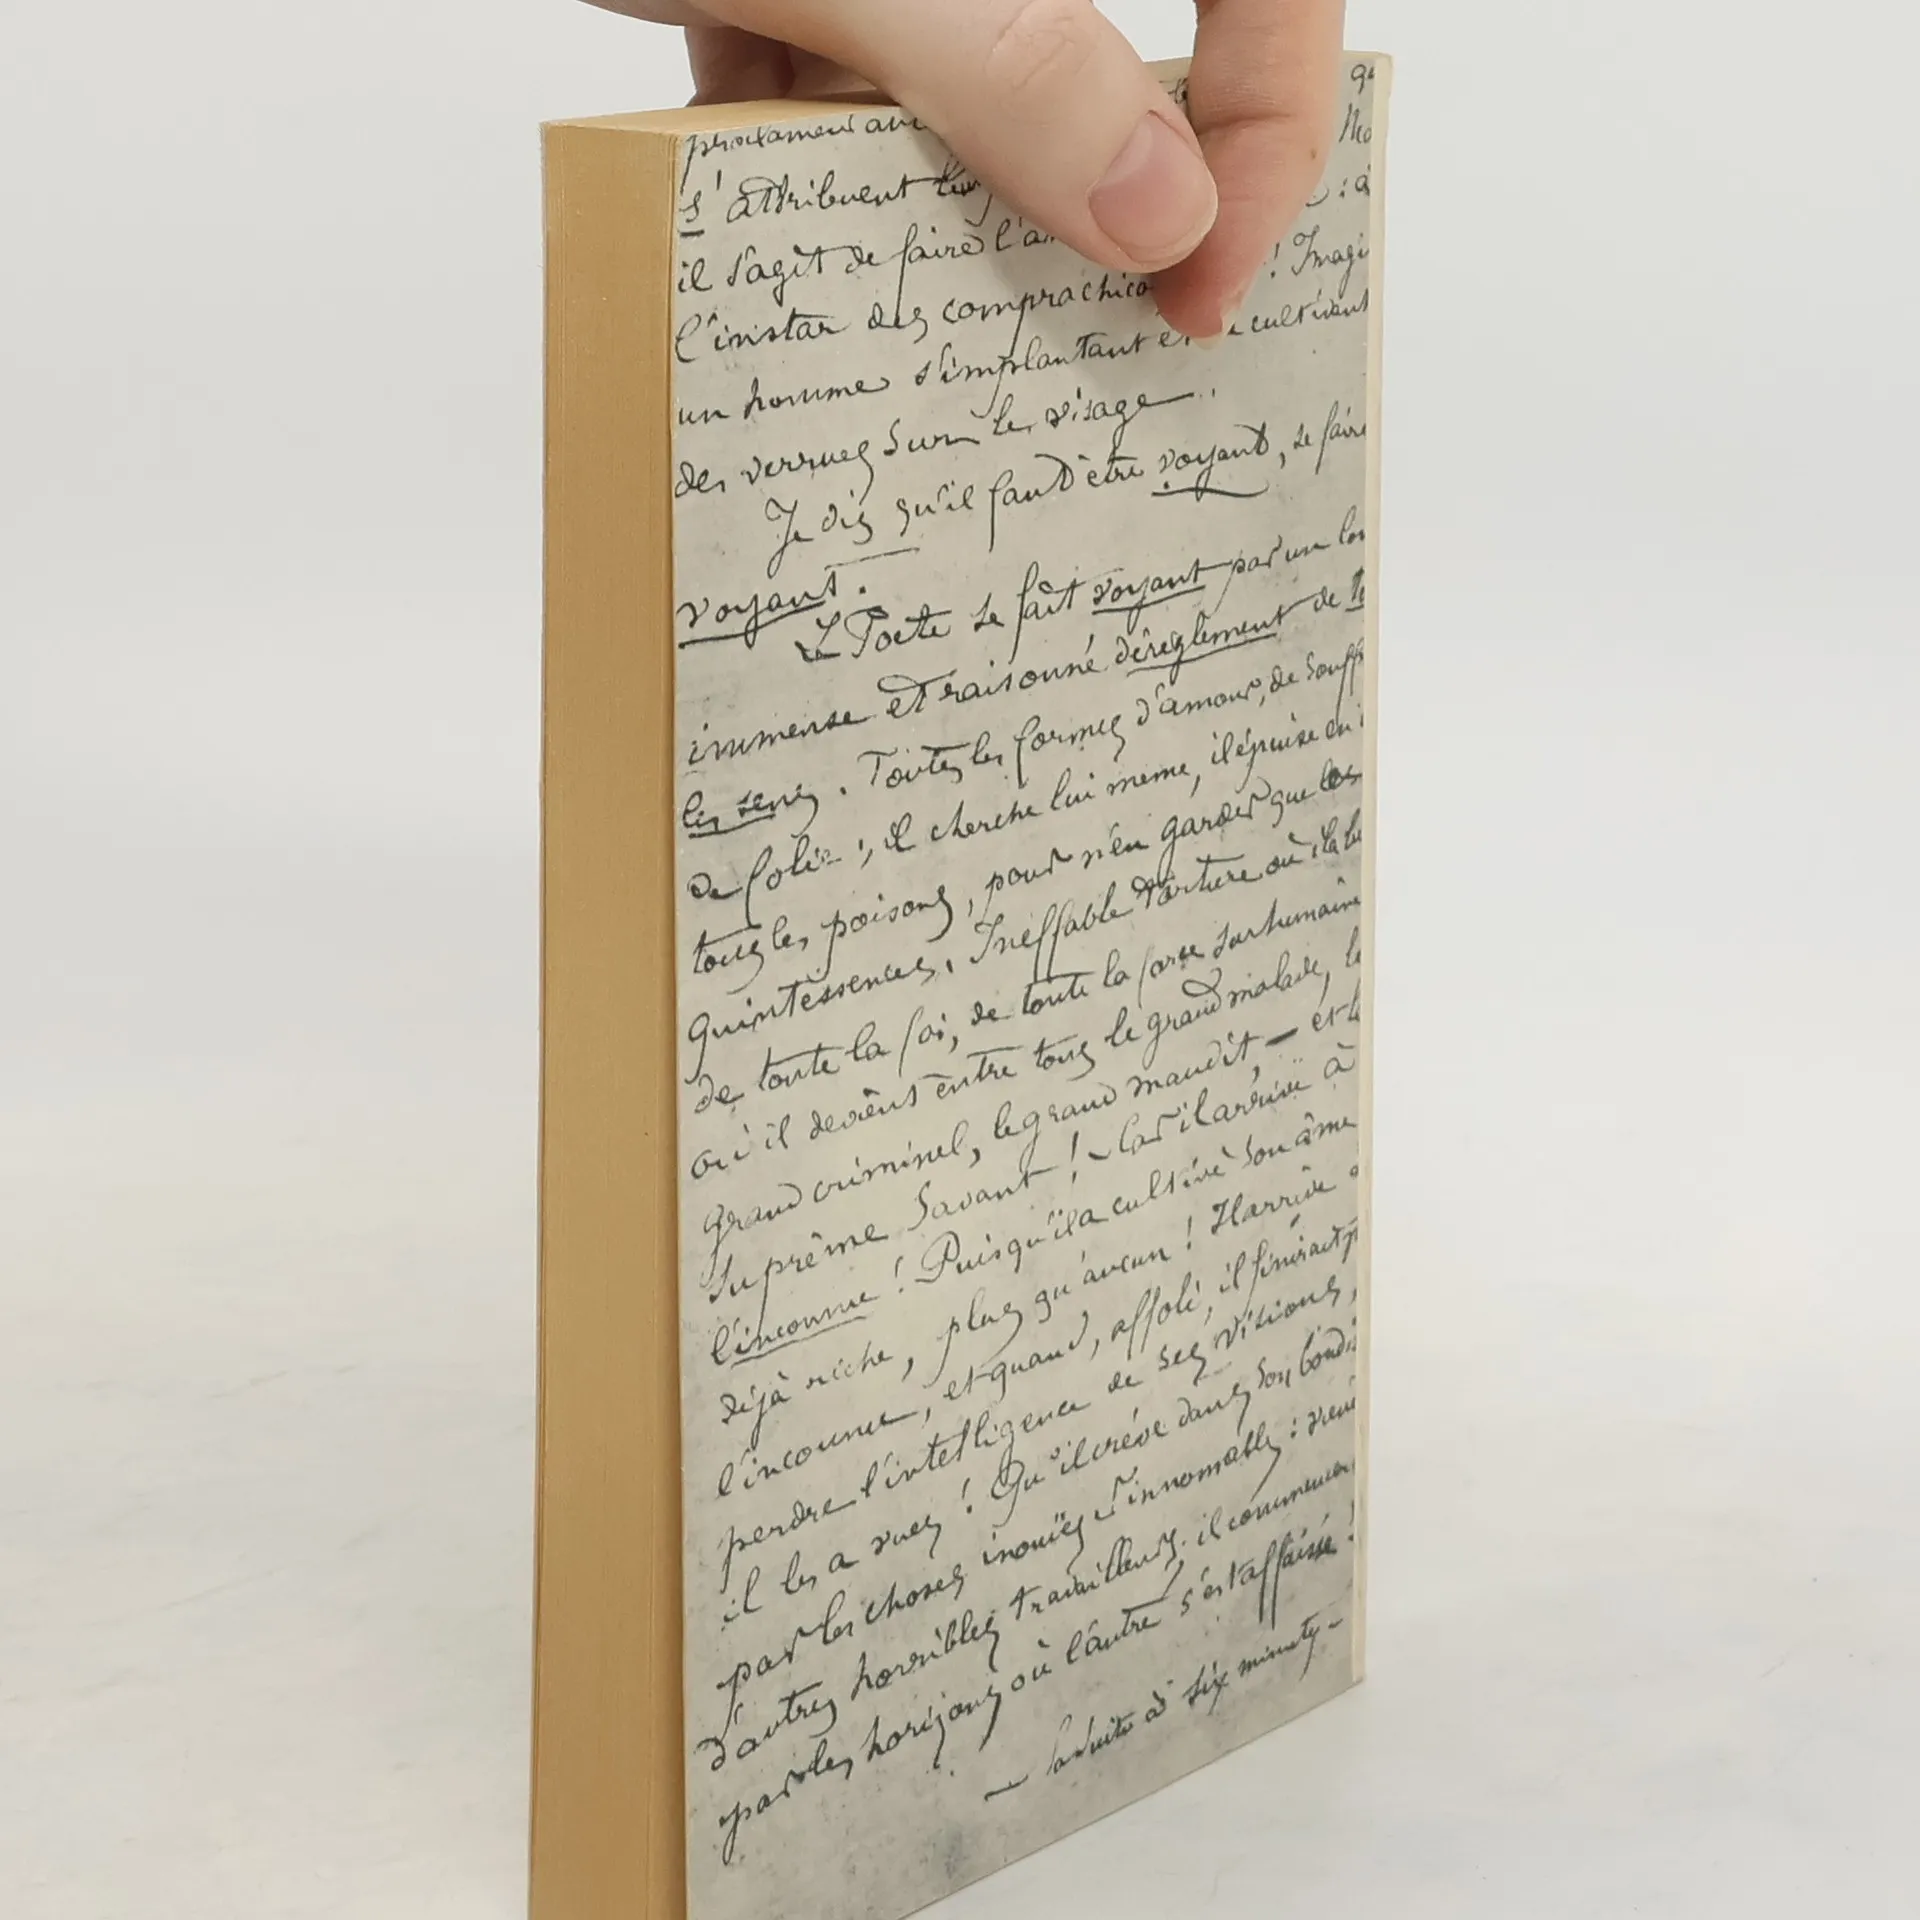 proclament au
s'attribuent leur
il s'agit de faire l'a : à
l'instar des comprachico ! Imagi
un homme s'implantant et cultivant
des verrues sur le visage.
Je dis qu'il faut être voyant, se faire
voyant.
Le Poète se fait voyant par un lon
immense et raisonné dérèglement de to
les sens. Toutes les formes d'amour, de souff
de folie ; il cherche lui même, il épuise en
tous les poisons, pour n'en garder que les
quintessences. Ineffable torture où il a be
de toute la foi, de toute la force surhumaine
où il devient entre tous le grand malade, le
grand criminel, le grand maudit, — et le
suprême Savant ! — Car il arrive à
l'inconnu ! Puisqu'il a cultivé son âme
déjà riche, plus qu'aucun ! Il arrive à
l'inconnu, et quand, affolé, il finirait p
perdre l'intelligence de ses visions,
il les a vues ! Qu'il crève dans son bondis
par les choses inouïes et innomables :
d'autres horribles travailleurs ; il commencer
par les horizons où l'autre s'est affaissé !
— la suite à six minutes —